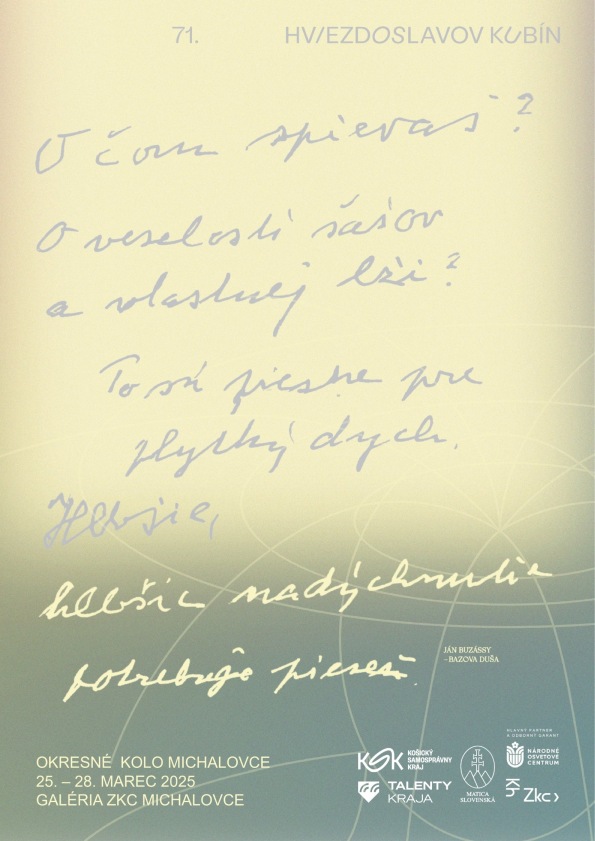 71. HVIEZDOSLAVOV KUBÍN
O čom spievaš?
O veselosti šašov
a vlastnej lži?
To sú piesne pre
plytký dych.
Hlbšie,
hlbšie nadýchnutie
potrebuje pieseň.
JÁN BUZÁSSY
– BAZOVA DUŠA
OKRESNÉ KOLO MICHALOVCE
25. – 28. MAREC 2025
GALÉRIA ZKC MICHALOVCE
KSK KOŠICKÝ
SAMOSPRÁVNY
KRAJ
TALENTY
KRAJA
MATICA
SLOVENSKÁ
HLAVNÝ PARTNER
A ODBORNÝ GARANT
NÁRODNÉ
OSVETOVÉ
CENTRUM
Zkc